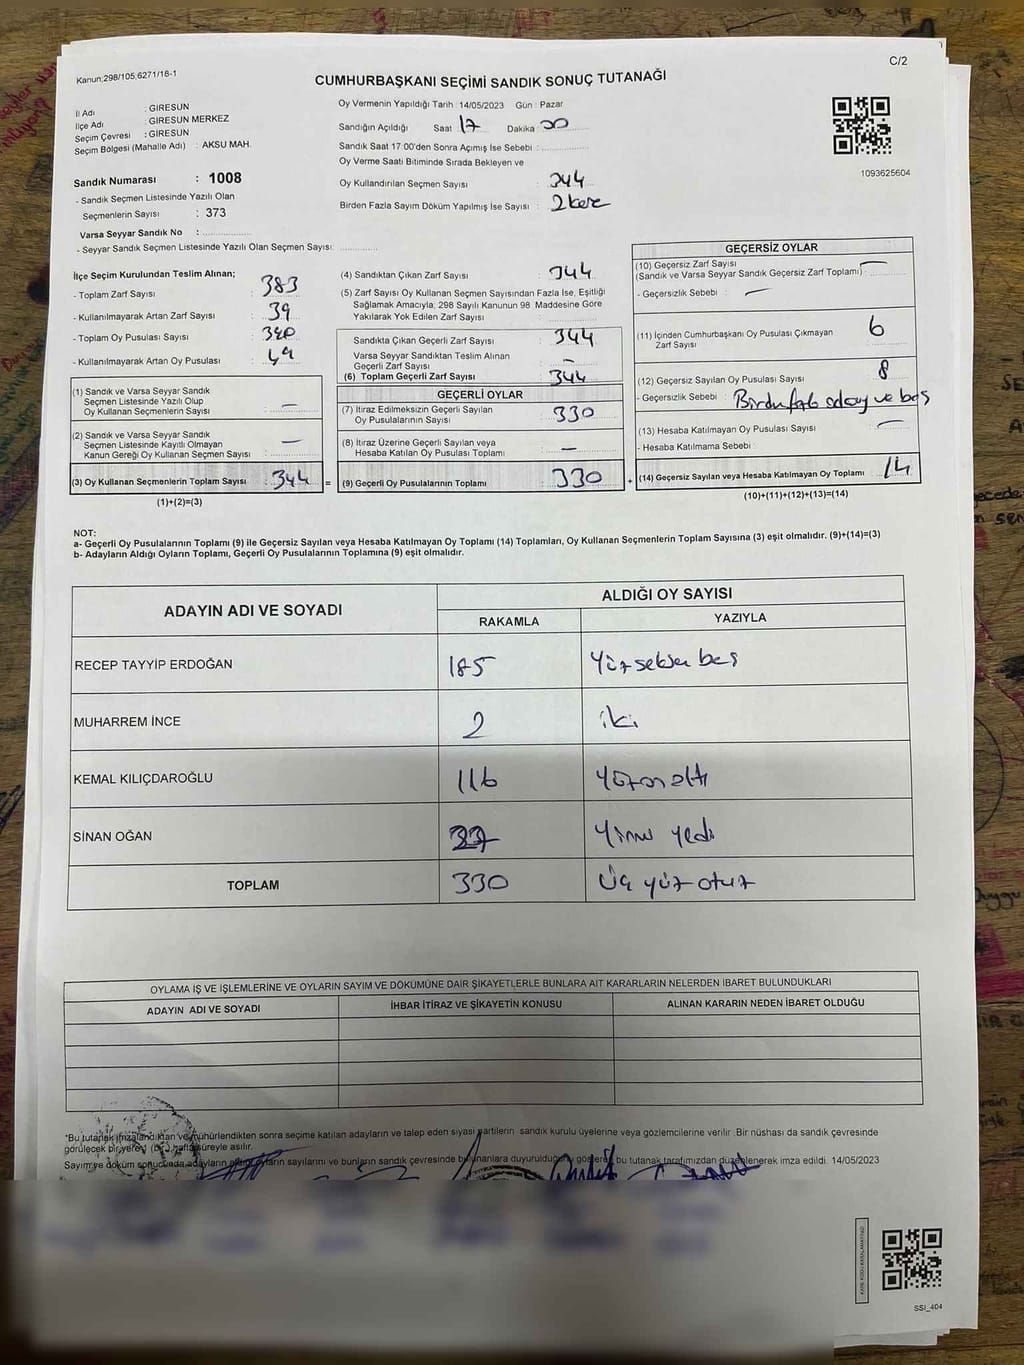 Kanun;298/105;6271/16-1
C/2
CUMHURBAŞKANI SEÇİMİ SANDIK SONUÇ TUTANAĞI
İl Adı : GİRESUN
İlçe Adı : GİRESUN MERKEZ
Seçim Çevresi : GİRESUN
Seçim Bölgesi (Mahalle Adı) : AKSU MAH.
Sandık Numarası : 1008
- Sandık Seçmen Listesinde Yazılı Olan
Seçmenlerin Sayısı : 373
Varsa Seyyar Sandık No :
- Seyyar Sandık Seçmen Listesinde Yazılı Olan Seçmen Sayısı:
Oy Vermenin Yapıldığı Tarih : 14/05/2023 Gün : Pazar
Sandığın Açıldığı Saat 17 Dakika 00
Sandık Saat 17:00'den Sonra Açımış İse Sebebi :
Oy Verme Saati Bitiminde Sırada Bekleyen ve
Oy Kullandırılan Seçmen Sayısı : 344
Birden Fazla Sayım Döküm Yapılmış İse Sayısı : 2 kere
1093625604
İlçe Seçim Kurulundan Teslim Alınan;
- Toplam Zarf Sayısı : 383
- Kullanılmayarak Artan Zarf Sayısı : 39
- Toplam Oy Pusulası Sayısı :
- Kullanılmayarak Artan Oy Pusulası :
(1) Sandık ve Varsa Seyyar Sandık
Seçmen Listesinde Yazılı Olup
Oy Kullanan Seçmenlerin Sayısı : —
(2) Sandık ve Varsa Seyyar Sandık
Seçmen Listesinde Kayıtlı Olmayan
Kanun Gereği Oy Kullanan Seçmen Sayısı : —
(3) Oy Kullanan Seçmenlerin Toplam Sayısı : 344 =
(1)+(2)=(3)
(4) Sandıktan Çıkan Zarf Sayısı : 344
(5) Zarf Sayısı Oy Kullanan Seçmen Sayısından Fazla İse, Eşitliği
Sağlamak Amacıyla, 298 Sayılı Kanunun 98 Maddesine Göre
Yakılarak Yok Edilen Zarf Sayısı :
Sandıkta Çıkan Geçerli Zarf Sayısı : 344
Varsa Seyyar Sandıktan Teslim Alınan
Geçerli Zarf Sayısı : —
(6) Toplam Geçerli Zarf Sayısı : 344
GEÇERLİ OYLAR
(7) İtiraz Edilmeksizin Geçerli Sayılan
Oy Pusulalarının Sayısı : 330
(8) İtiraz Üzerine Geçerli Sayılan veya
Hesaba Katılan Oy Pusulası Toplamı : —
(9) Geçerli Oy Pusulalarının Toplamı : 330 +
GEÇERSİZ OYLAR
(10) Geçersiz Zarf Sayısı
(Sandık ve Varsa Seyyar Sandık Geçersiz Zarf Toplamı) : —
- Geçersizlik Sebebi : —
(11) İçinden Cumhurbaşkanı Oy Pusulası Çıkmayan
Zarf Sayısı : 6
(12) Geçersiz Sayılan Oy Pusulası Sayısı : 8
- Geçersizlik Sebebi : ve boş
(13) Hesaba Katılmayan Oy Pusulası Sayısı : —
- Hesaba Katılmama Sebebi :
(14) Geçersiz Sayılan veya Hesaba Katılmayan Oy Toplamı : 14
(10)+(11)+(12)+(13)=(14)
NOT:
a- Geçerli Oy Pusulalarının Toplamı (9) ile Geçersiz Sayılan veya Hesaba Katılmayan Oy Toplamı (14) Toplamları, Oy Kullanan Seçmenlerin Toplam Sayısına (3) eşit olmalıdır. (9)+(14)=(3)
b- Adayların Aldığı Oyların Toplamı, Geçerli Oy Pusulalarının Toplamına (9) eşit olmalıdır.
ADAYIN ADI VE SOYADI
ALDIĞI OY SAYISI
RAKAMLA YAZIYLA
RECEP TAYYİP ERDOĞAN 185 Yüz seksen beş
MUHARREM İNCE 2 iki
KEMAL KILIÇDAROĞLU 116 Yüz on altı
SİNAN OĞAN 27 Yirmi yedi
TOPLAM 330 Üç yüz otuz
OYLAMA İŞ VE İŞLEMLERİNE VE OYLARIN SAYIM VE DÖKÜMÜNE DAİR ŞİKAYETLERLE BUNLARA AİT KARARLARIN NELERDEN İBARET BULUNDUKLARI
ADAYIN ADI VE SOYADI İHBAR İTİRAZ VE ŞİKAYETİN KONUSU ALINAN KARARIN NEDEN İBARET OLDUĞU
*Bu tutanak imzalandıktan ve mühürlendikten sonra seçime katılan adayların ve talep eden siyasi partilerin sandık kurulu üyelerine veya gözlemcilerine verilir. Bir nüshası da sandık çevresinde
görülecek bir yere (bir) hafta süreyle asılır.
Sayım ve döküm sonucunda adayların aldığı oyların sayılarını ve bunların sandık çevresinde bulunanlara duyurulduğunu gösteren bu tutanak tarafımızdan düzenlenerek imza edildi. 14/05/2023
SSI_404